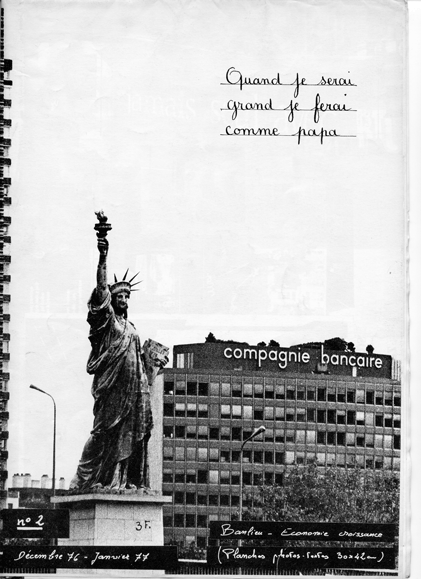 Quand je serai
grand je ferai
comme papa
compagnie bancaire
3F.
nº 2
Banlieu - Economie croissance
Décembre 76 - Janvier 77
(Planches photos-textes 30x42cm)